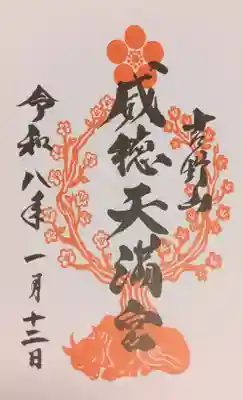 吉野山
威徳天満宮
令和八年
一月十二日